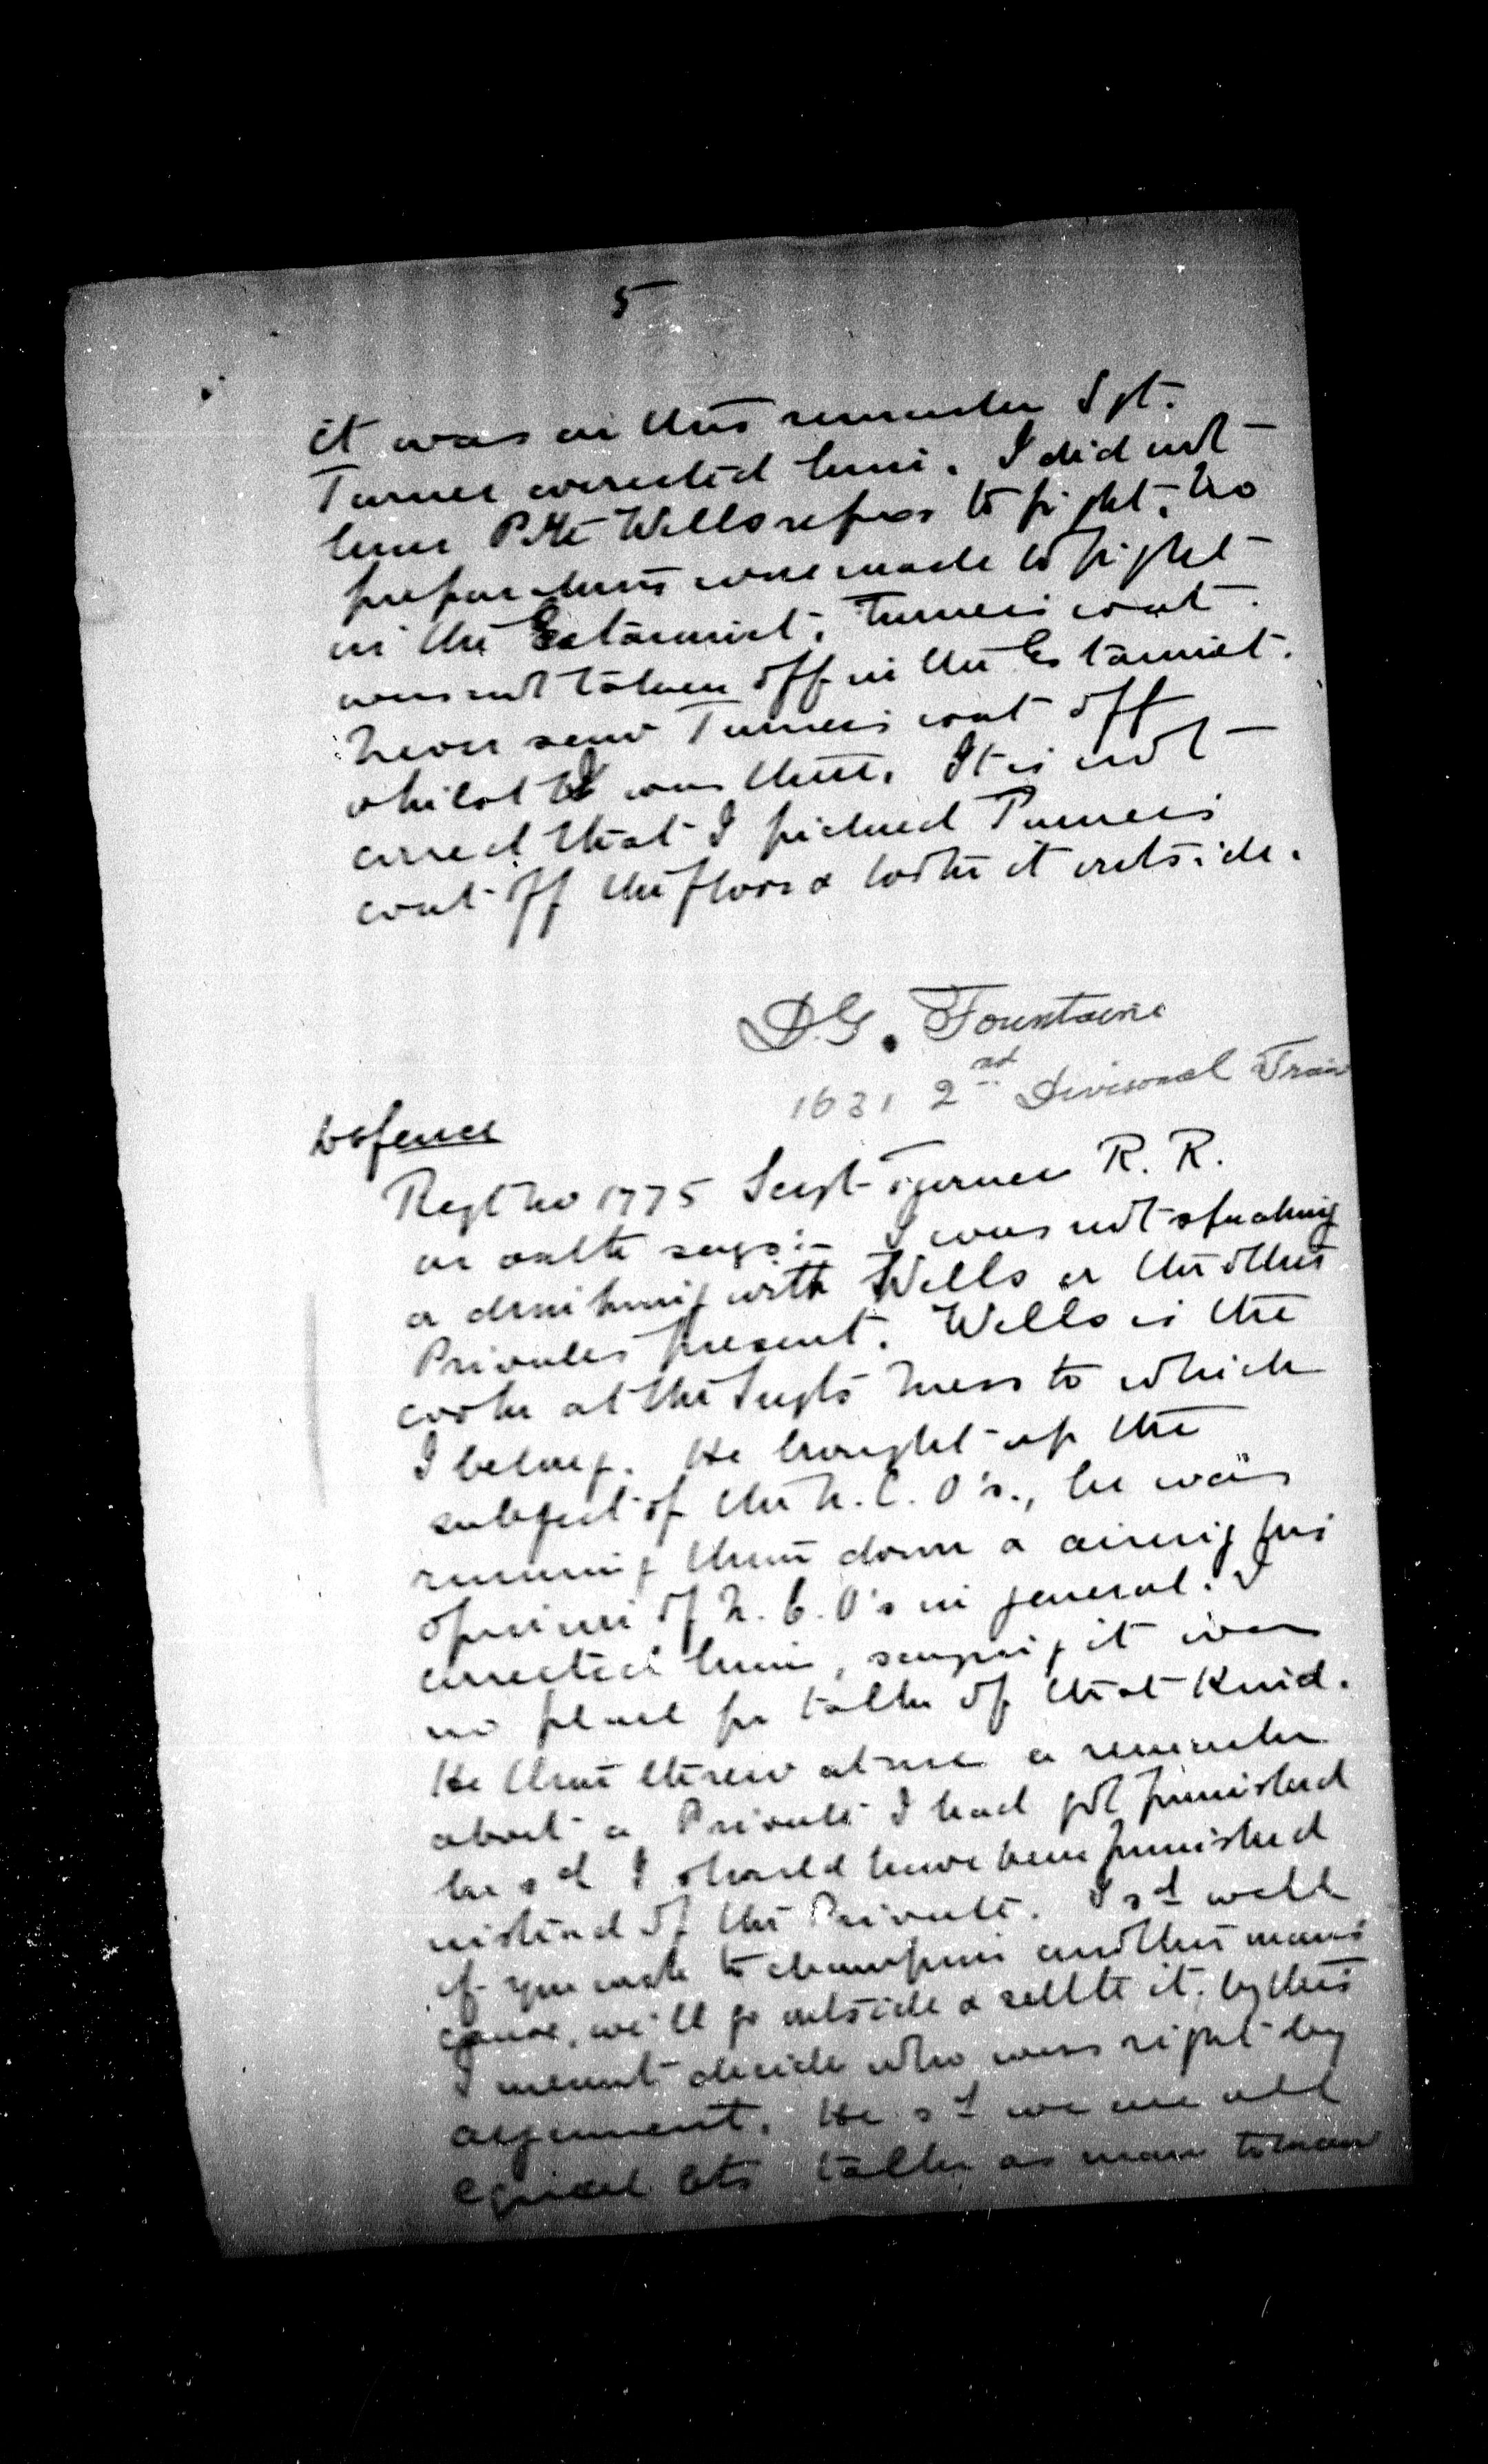 5
it was in this remarks Sgt.
Turner corrected him. I did not
hear Pte Wells refuse to fight. No
preparations were made to fight
in the Estaminet. Turners coat
was not taken off in the Estaminet.
Never saw Turners coat off
whilst I was there. It is not
correct that I picked Turners
coat off the floor & took it outside.
D.G. Fountaine
1631 2nd Divisional Train
Defence
Regt No 1775 Sergt Turner R. R.
on oath says:- I was not speaking
or drinking with Wells or the other
Privates present. Wells is the
cook at the Sergts Mess to which
I belong. He brought up the
subject of the N. C. O's., he was
running them down & airing his
opinion of N. C. O's in general. I
corrected him, saying it was
no place for talk of that kind.
He then threw at me a remark
about a Private I had got punished
he sd I should have been punished
instead of the Private. I sd well
if you wish to champion another mans
cause, we'll go outside & settle it, by this
I meant decide who was right by
argument. He sd we are all
equal lets talk as man to man